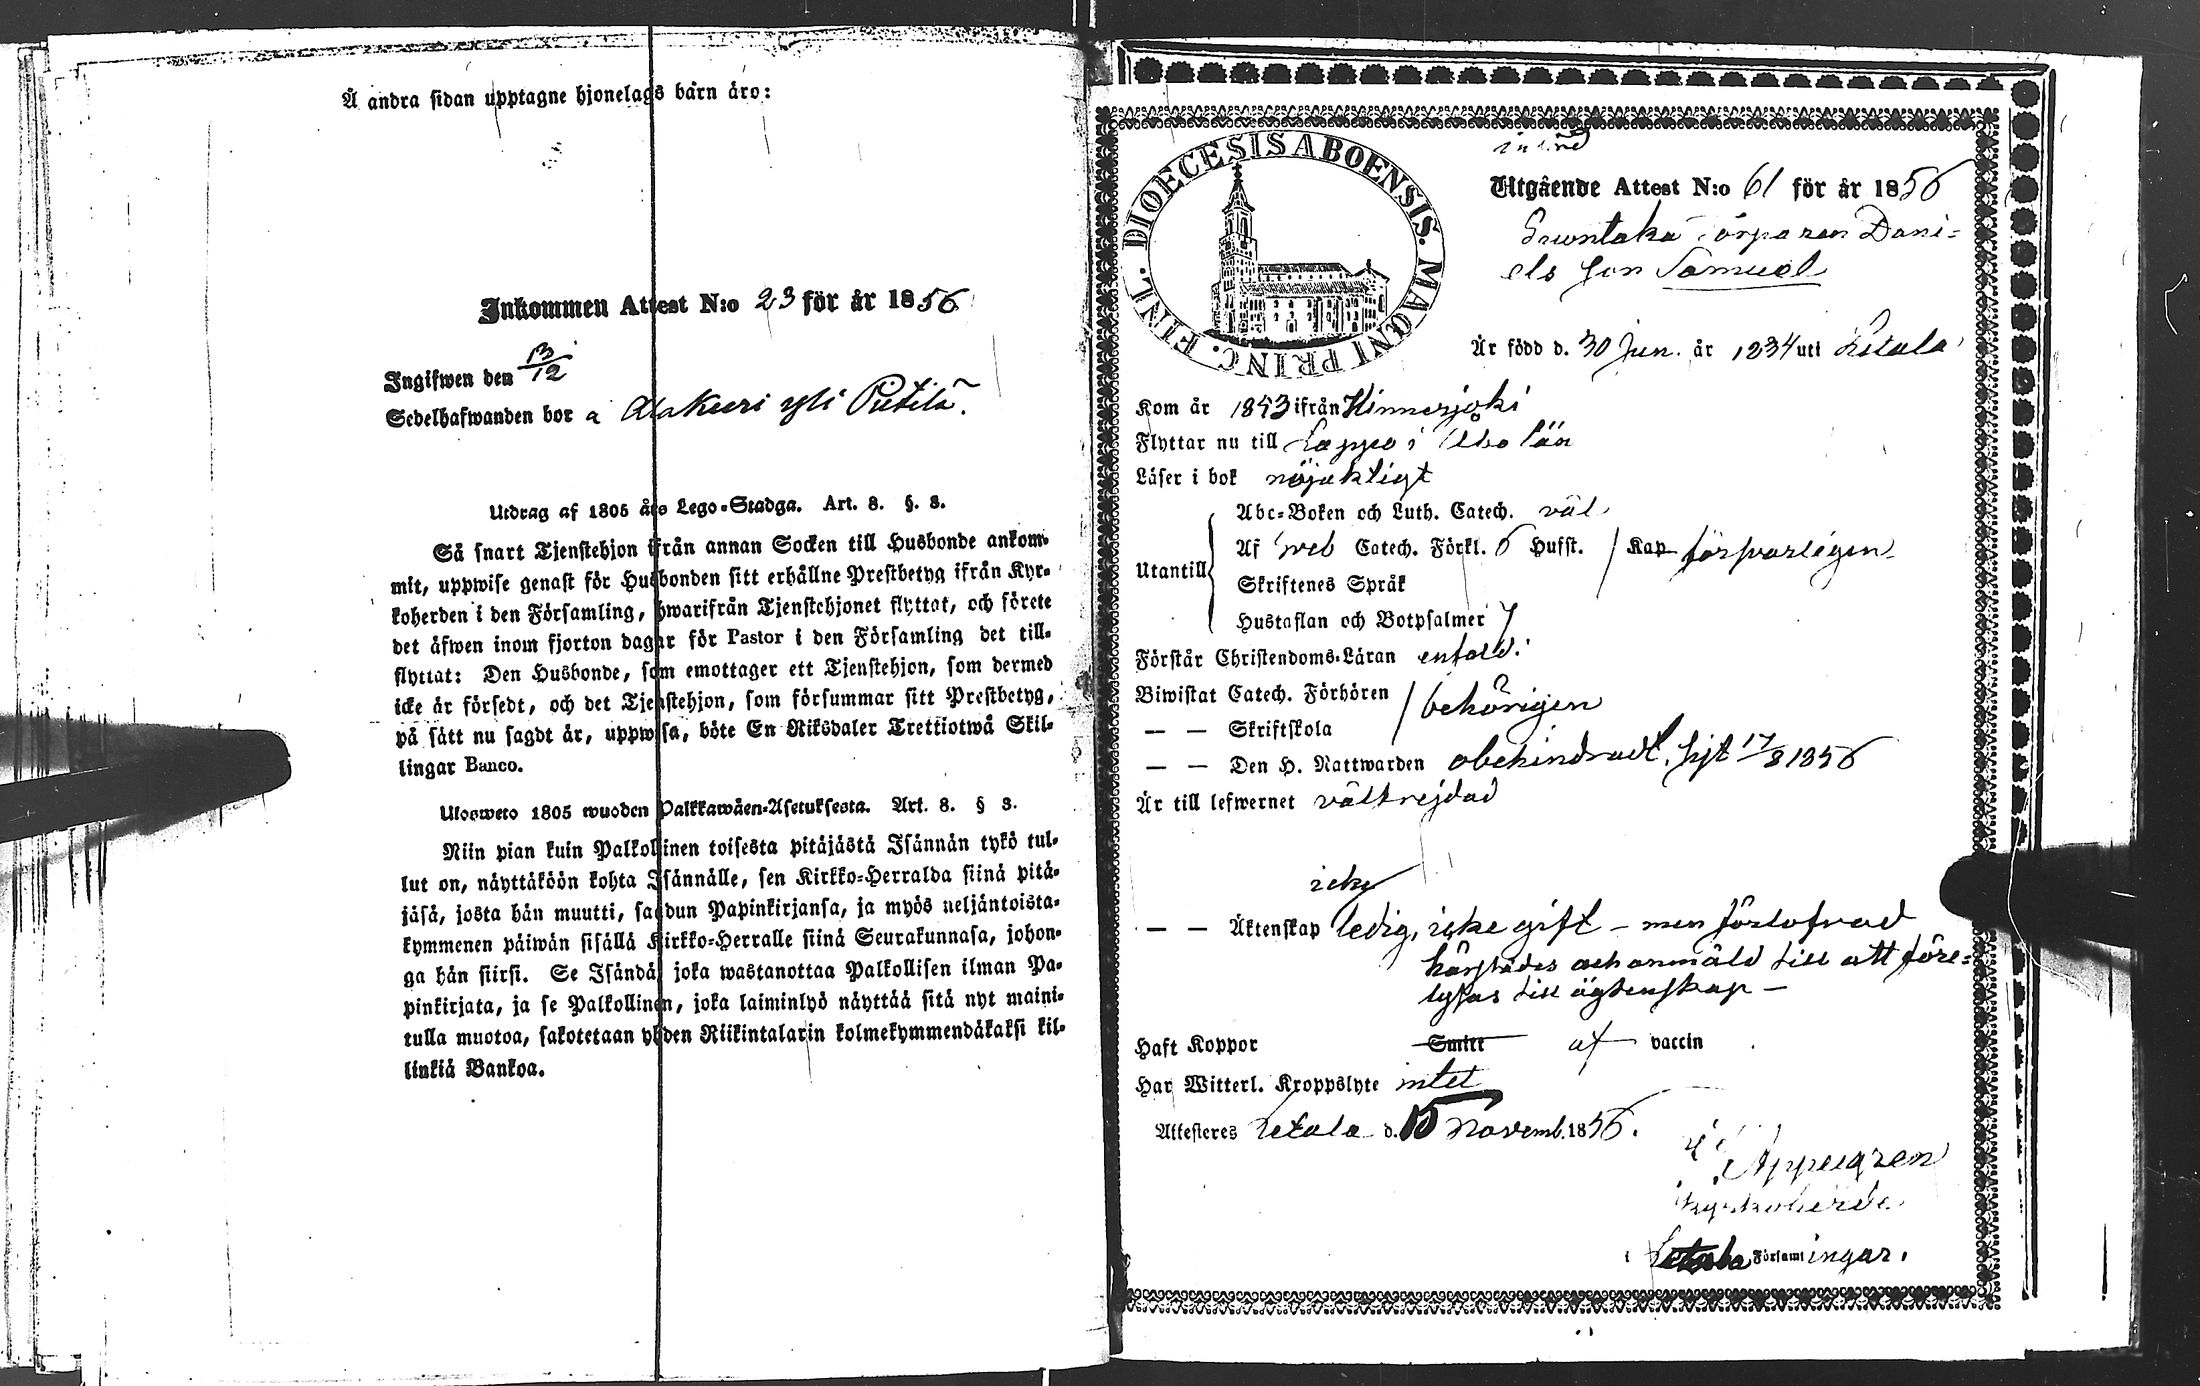 Å andra sidan upptagne hjonelags barn äro:
Inkommen Attest N:o 23 för år 1856
Ingifwen den 13/12
Sedelhafwanden bor a Alakeeri yli Pietilä.
Utdrag af 1805 års Lego-Stadga. Art. 8. §. 3.
Så snart Tjenstehjon ifrån annan Socken till Husbonde ankom-
mit, uppwise genast för Husbonden sitt erhållne Prestbetyg ifrån Kyr-
koherden i den Församling, hwarifrån Tjenstehjonet flyttat, och förete
det äfwen inom fjorton dagar för Pastor i den Församling det till-
flyttat: Den Husbonde, som emottager ett Tjenstehjon, som dermed
icke är försedt, och det Tjenstehjon, som försummar sitt Prestbetyg,
på sätt nu sagdt är, uppwisa, böte En Riksdaler Trettiotwå Skil-
lingar Banco.
Ulosweto 1805 wuoden Palkkawäen-Asetuksesta. Art. 8. § 3.
Niin pian kuin Palkollinen toisesta pitäjästä Isännän tykö tul-
lut on, näyttäköön kohta Isännälle, sen Kirkko-Herralda siinä pitä-
jäsä, josta hän muutti, saadun Papinkirjansa, ja myös neljäntoista-
kymmenen päiwän sisällä Kirkko-Herralle siinä Seurakunnasa, johon-
ga hän siirsi. Se Isändä joka wastanottaa Palkollisen ilman Pa-
pinkirjata, ja se Palkollinen, joka laiminlyö näyttää sitä nyt maini-
tulla muotoa, sakotetaan yhden Riikintalarin kolmekymmendäkaksi kil-
linkiä Bankoa.
FINL. DIOECESIS ABOENSIS. MAGNI PRINC.
Utgående Attest N:o 61 för år 1856
Suontaka Torparen Dani-
els son Samuel
Är född d. 30 Jun. år 1834 uti Letala
Kom år 1853 ifrån Hinnerjoki
Flyttar nu till Lappo i Åbo län
Läser i bok nöjaktigt
Abc-Boken och Luth. Catech. väl
Utantill Af Sweb Catech. Förkl. 6 Husst. Kap försvarligen
Skriftenes Språk
Hustaflan och Botpsalmer 7
Förstår Christendoms-Läran enfald:
Biwistat Catech. Förhören behörigen
— — Skriftskola
— — Den H. Nattwarden obehindradt, sist 17/8 1856
Är till lefwernet välfrejdad
icke
— — Äktenskap ledig, icke gift - men förlofvad
härstädes och anmäld till att före-
lysas till ägtenskap -
Haft Koppor Smitt af vaccin
Har Witterl. Kroppslyte intet
Attesteres Letala d. 15 Novemb. 1856.
Appelgren
Kyrkoherde
i Letala Församlingar.